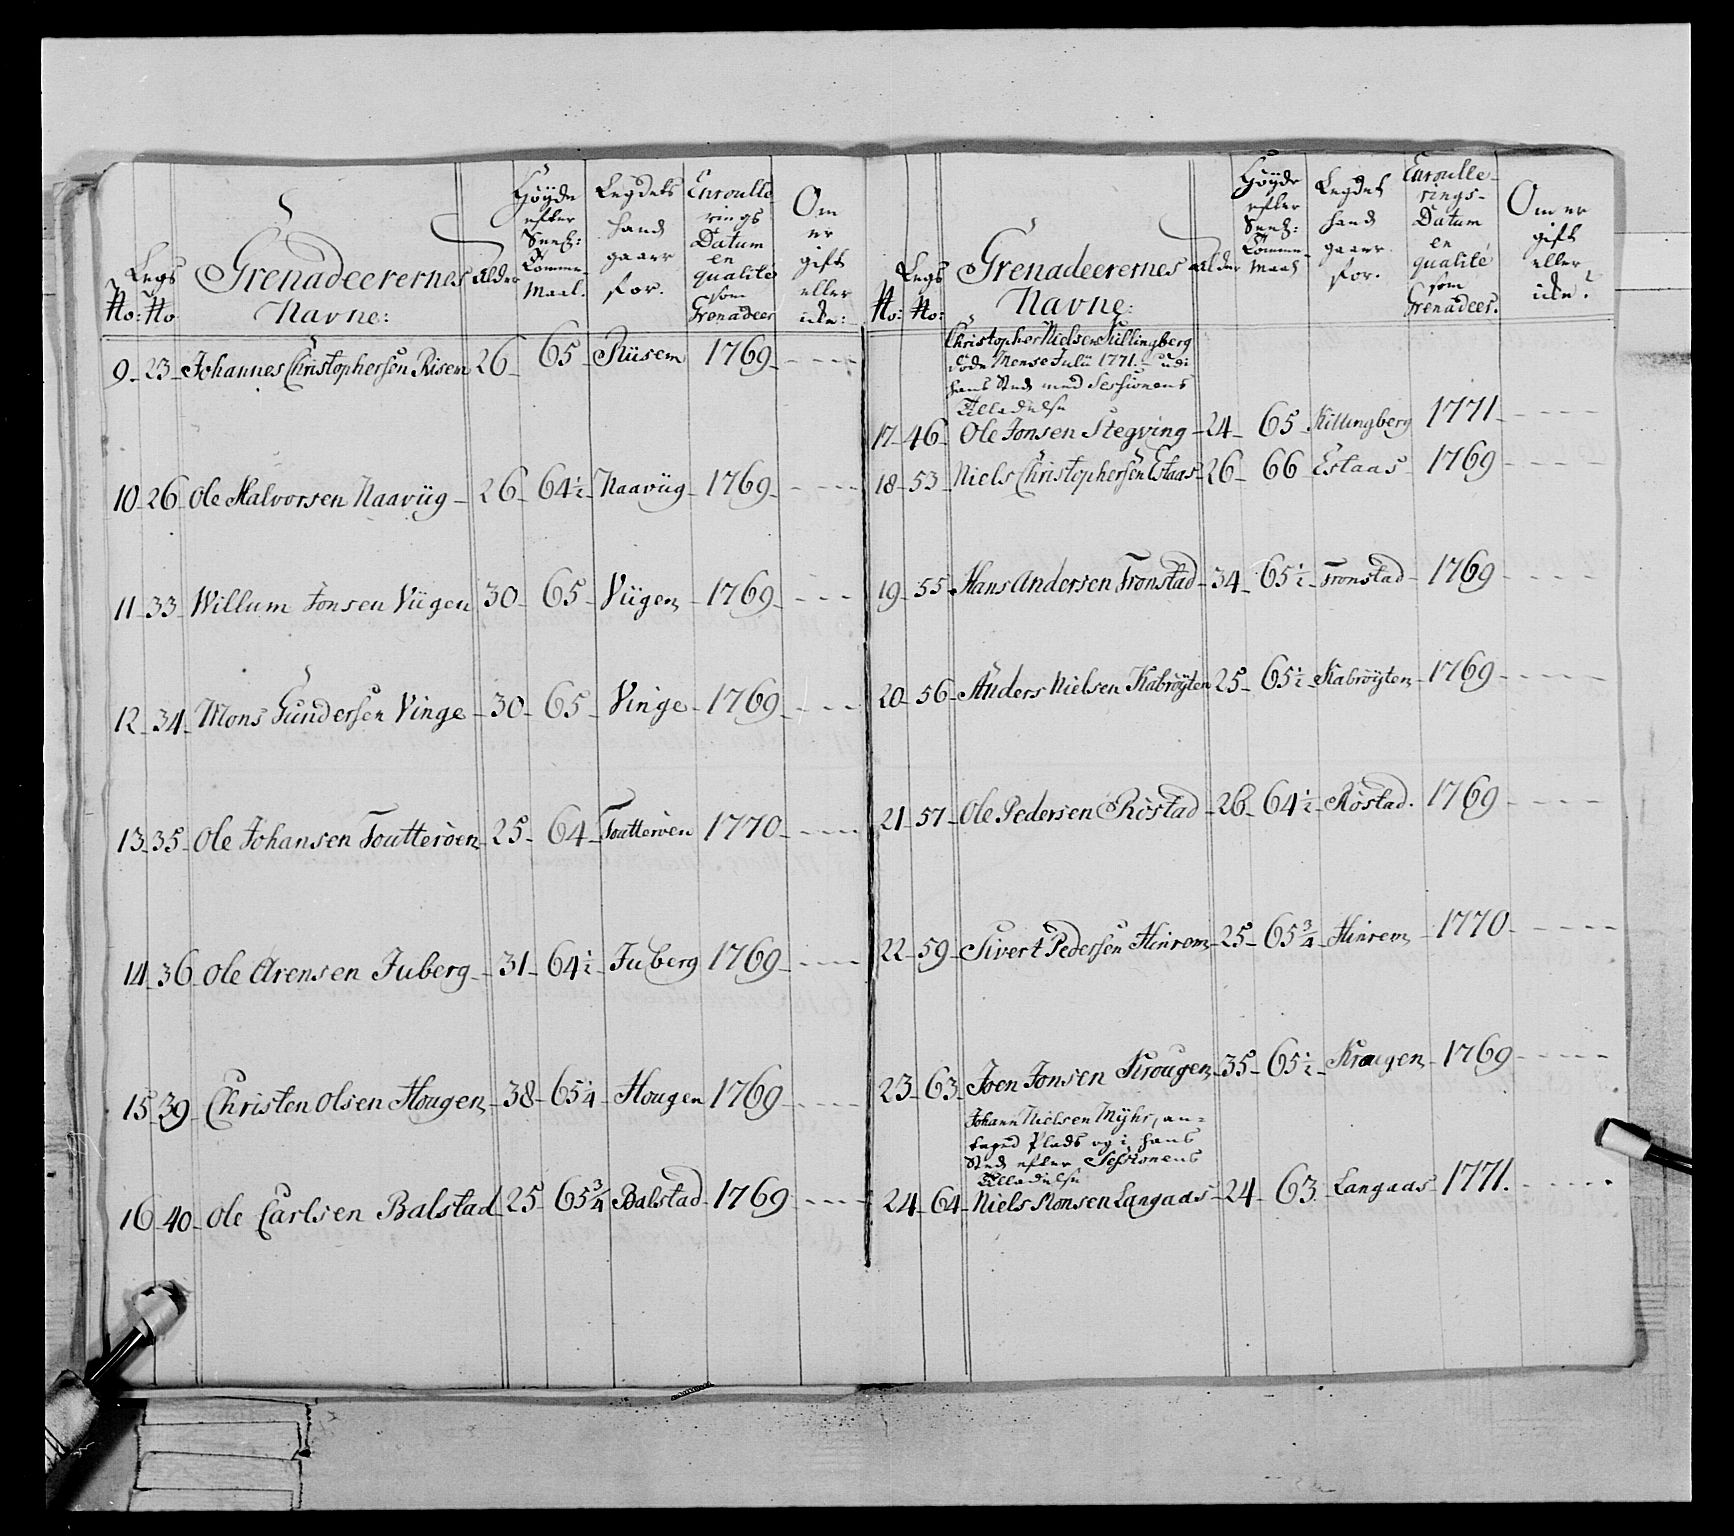 No: Legs No: Grenadeerernes Navne: Alder Høyde efter Siuelz: Komme Maal. Legdets hand gaaer for. Enroulle rings Datum en qualité som Grenadeer Om er gift eller icke:
9 23 Johannes Christophersen Risem 26 65 Rüsem 1769 - - - -
10 26 Ole Halvorsen Naavüg 26 64½ Naavüg 1769 - - - -
11 33 Willum Jonsen Viigen 30 65 Viigen 1769 - - - -
12 34 Mons Gundersen Vinge 30 65 Vinge 1769 - - - -
13 35 Ole Johansen Toutteröen 25 64 Toutteröen 1770 - - - -
14 36 Ole Arensen Juberg 31 64½ Juberg 1769 - - - -
15 39 Christen Olsen Hougen 38 65¼ Hougen 1769 - - - -
16 40 Ole Carlsen Balstad 25 65¾ Balstad 1769 - - - -
No: Legs No: Grenadeerernes Navne: Alder Høyde efter Komme Maal Legdet hand gaaer for. Enroulle- rings- Datum en qualité som Grenadeer. Om er gift eller icke?
Christopher Nielsen Killingberg
döde Mense Julii 1771. - udi
hans Sted med Sessionens
Tilladelse
17 46 Ole Jonsen Stegving 24 65 Killingberg 1771 - - - -
18 53 Niels Christophersen Estaas 26 66 Estaas 1769 - - - -
19 55 Hans Andersen Tronstad 34 65½ Tronstad 1769 - - - -
20 56 Anders Nielsen Kabröyten 25 65½ Kabröyten 1769 - - - -
21 57 Ole Pedersen Röstad 26 64½ Röstad. 1769 - - - -
22 59 Sivert Pedersen Hinrem 25 65¾ Hinrem 1770 - - - -
23 63 Joen Jonsen Krougen 35 65½ Krougen 1769 - - - -
Johann Nielsen Myhr, an-
taged Plads og i hans
Sted efter Sessionens
Tilladelse
24 64 Niels Monsen Langaas 24 63 Langaas 1771. - - - -